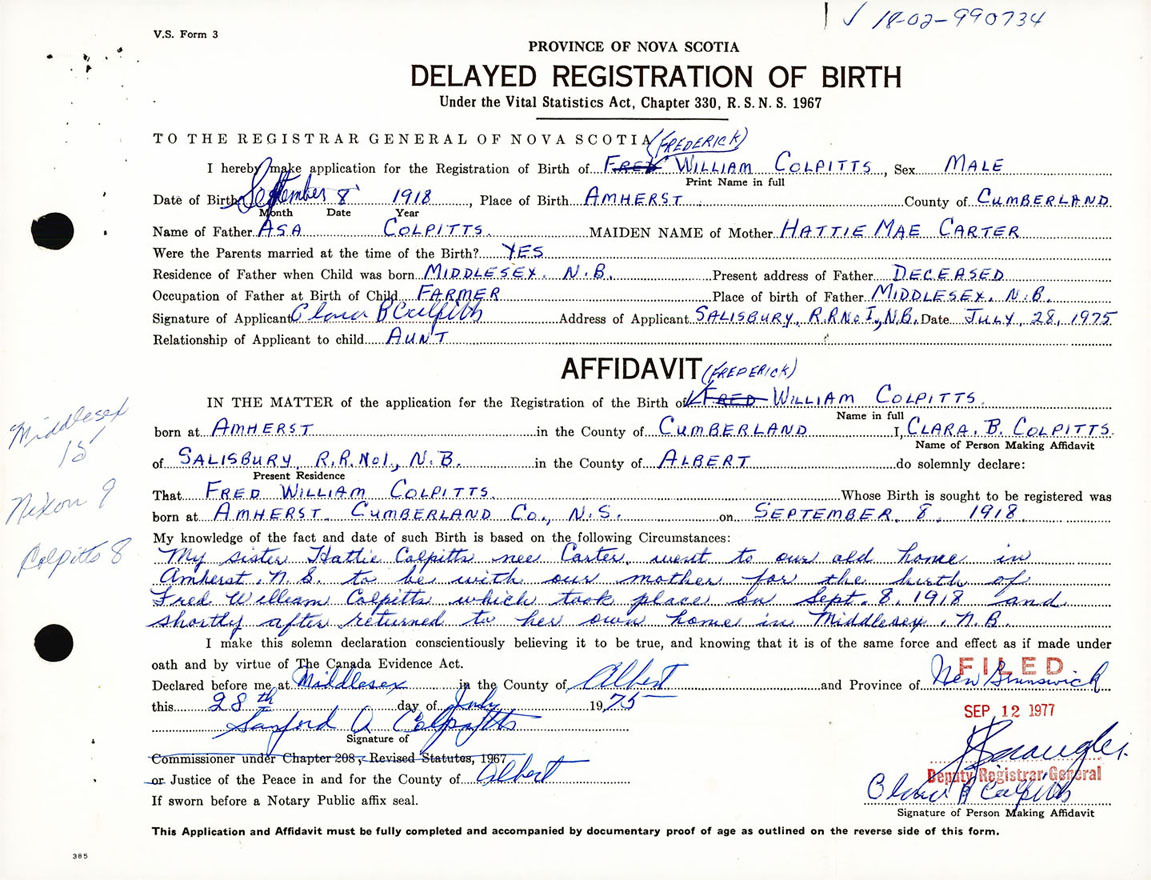 18-02-990734
V.S. Form 3
PROVINCE OF NOVA SCOTIA
DELAYED REGISTRATION OF BIRTH
Under the Vital Statistics Act, Chapter 330, R. S. N. S. 1967
TO THE REGISTRAR GENERAL OF NOVA SCOTIA (FREDERICK)
I hereby make application for the Registration of Birth of FRED WILLIAM COLPITTS, Sex MALE
Print Name in full
Date of Birth September 8 1918, Place of Birth AMHERST County of CUMBERLAND
Month Date Year
Name of Father ASA COLPITTS MAIDEN NAME of Mother HATTIE MAE CARTER
Were the Parents married at the time of the Birth? YES
Residence of Father when Child was born MIDDLESEX. N.B. Present address of Father DECEASED
Occupation of Father at Birth of Child FARMER Place of birth of Father MIDDLESEX. N.B.
Signature of Applicant Clara B Colpitts Address of Applicant SALISBURY, R.R.No I., N.B. Date JULY, 28, 1975
Relationship of Applicant to child AUNT
AFFIDAVIT (FREDERICK)
IN THE MATTER of the application for the Registration of the Birth of FRED WILLIAM COLPITTS.
Name in full
born at AMHERST in the County of CUMBERLAND I, CLARA. B. COLPITTS.
Name of Person Making Affidavit
of SALISBURY, R.R.No1., N.B. in the County of ALBERT do solemnly declare:
Present Residence
That FRED WILLIAM COLPITTS. Whose Birth is sought to be registered was
born at AMHERST. CUMBERLAND CO., N.S. on SEPTEMBER. 8. 1918.
My knowledge of the fact and date of such Birth is based on the following Circumstances:
My sister Hattie Colpitts nee Carter, went to our old home in
Amherst. N.S. to be with our mother for the birth of
Fred William Colpitts which took place on Sept. 8. 1918 and
shortly after returned to her own home in Middlesex. N.B.
Middlesex
15
Nixon 9
Colpitts 8
I make this solemn declaration conscientiously believing it to be true, and knowing that it is of the same force and effect as if made under
oath and by virtue of The Canada Evidence Act.
Declared before me at Middlesex in the County of Albert and Province of New Brunswick
FILED
this 28th day of July 1975
SEP 12 1977
Sanford A Colpitts
Signature of
Commissioner under Chapter 208, Revised Statutes, 1967
or Justice of the Peace in and for the County of Albert
Deputy Registrar General
Clara B Colpitts
If sworn before a Notary Public affix seal.
Signature of Person Making Affidavit
This Application and Affidavit must be fully completed and accompanied by documentary proof of age as outlined on the reverse side of this form.
385